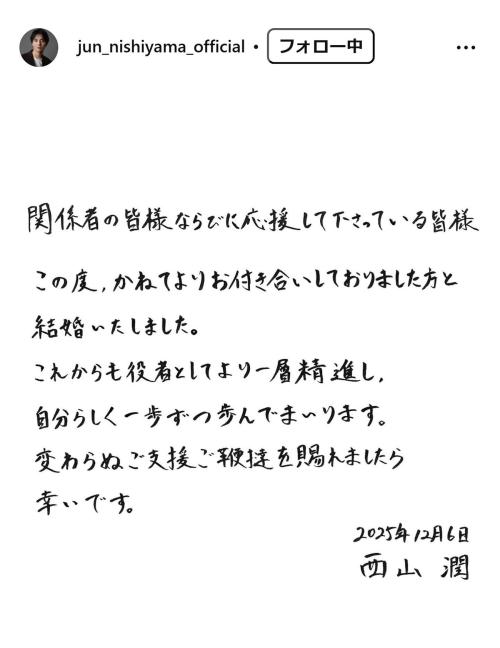 jun_nishiyama_official • フォロー中
関係者の皆様ならびに応援して下さっている皆様
この度,かねてよりお付き合いしておりました方と
結婚いたしました。
これからも役者としてより一層精進し,
自分らしく一歩ずつ歩んでまいります。
変わらぬご支援ご鞭撻を賜れましたら
幸いです。
2025年12月6日
西山 潤